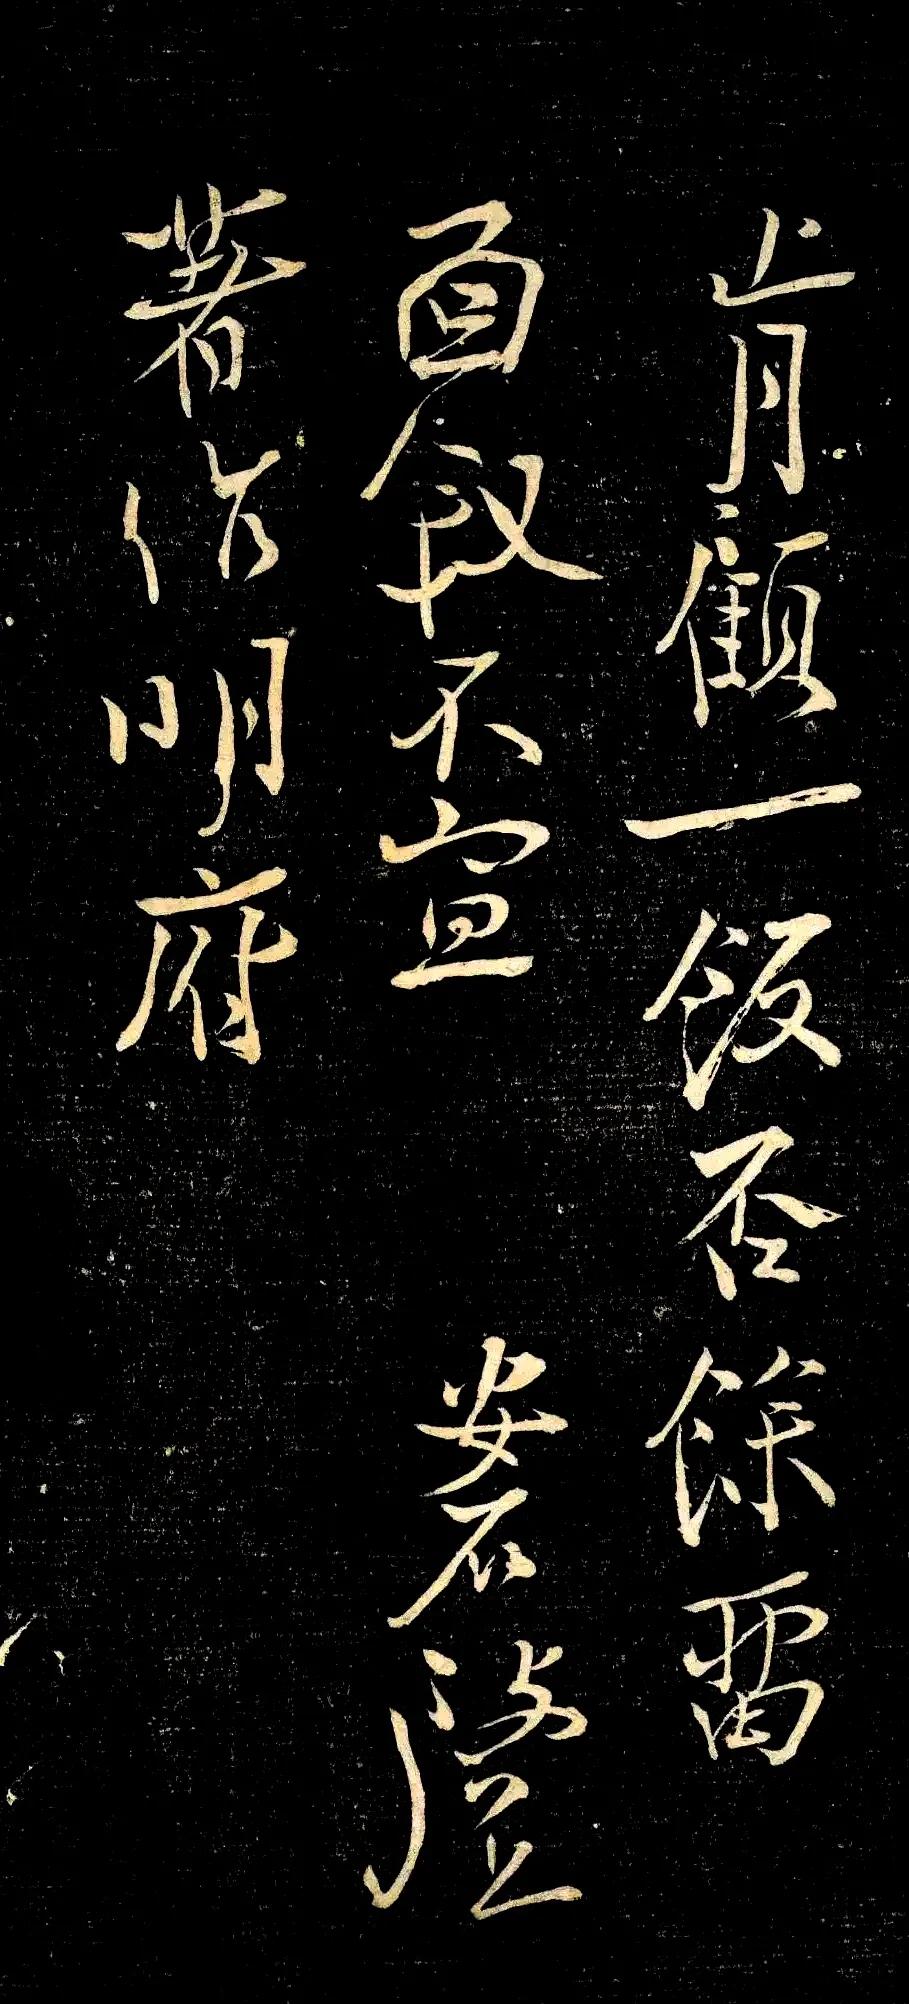 肯顧一飯否餘留
面叙不宣 安石啓上
著作明府